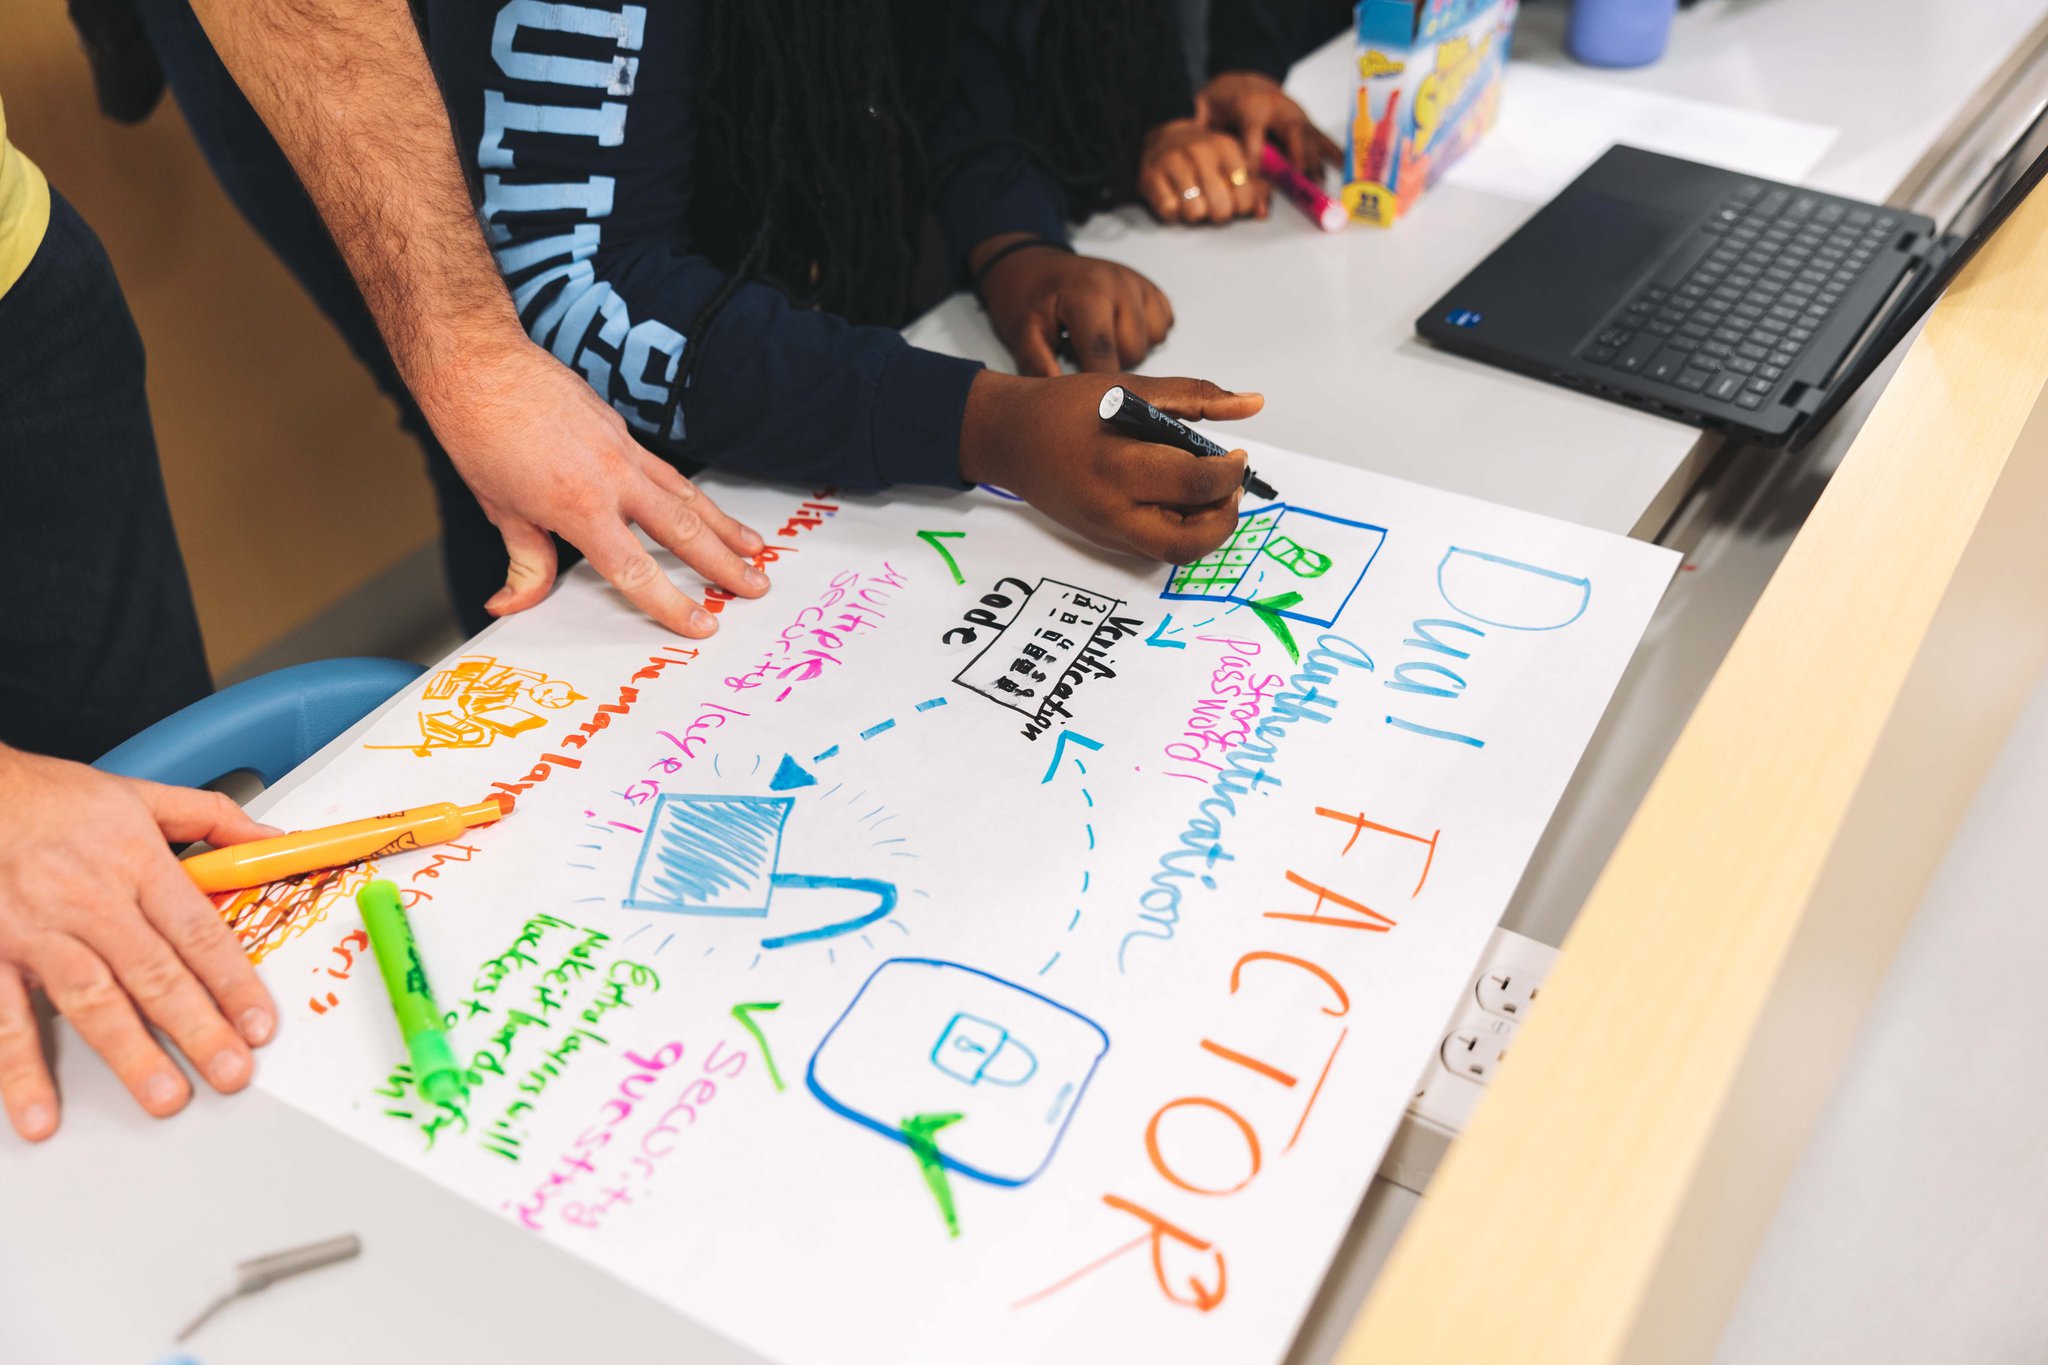 Dual FACTOR
Authentication
Strong
Password!
Verification
Code
Multiple-
Security layers!
Security
questxn!
Extra layers will
make it harder for
hackers to
The more laye
the b
s like
Mr. Sketch
22
ULLI